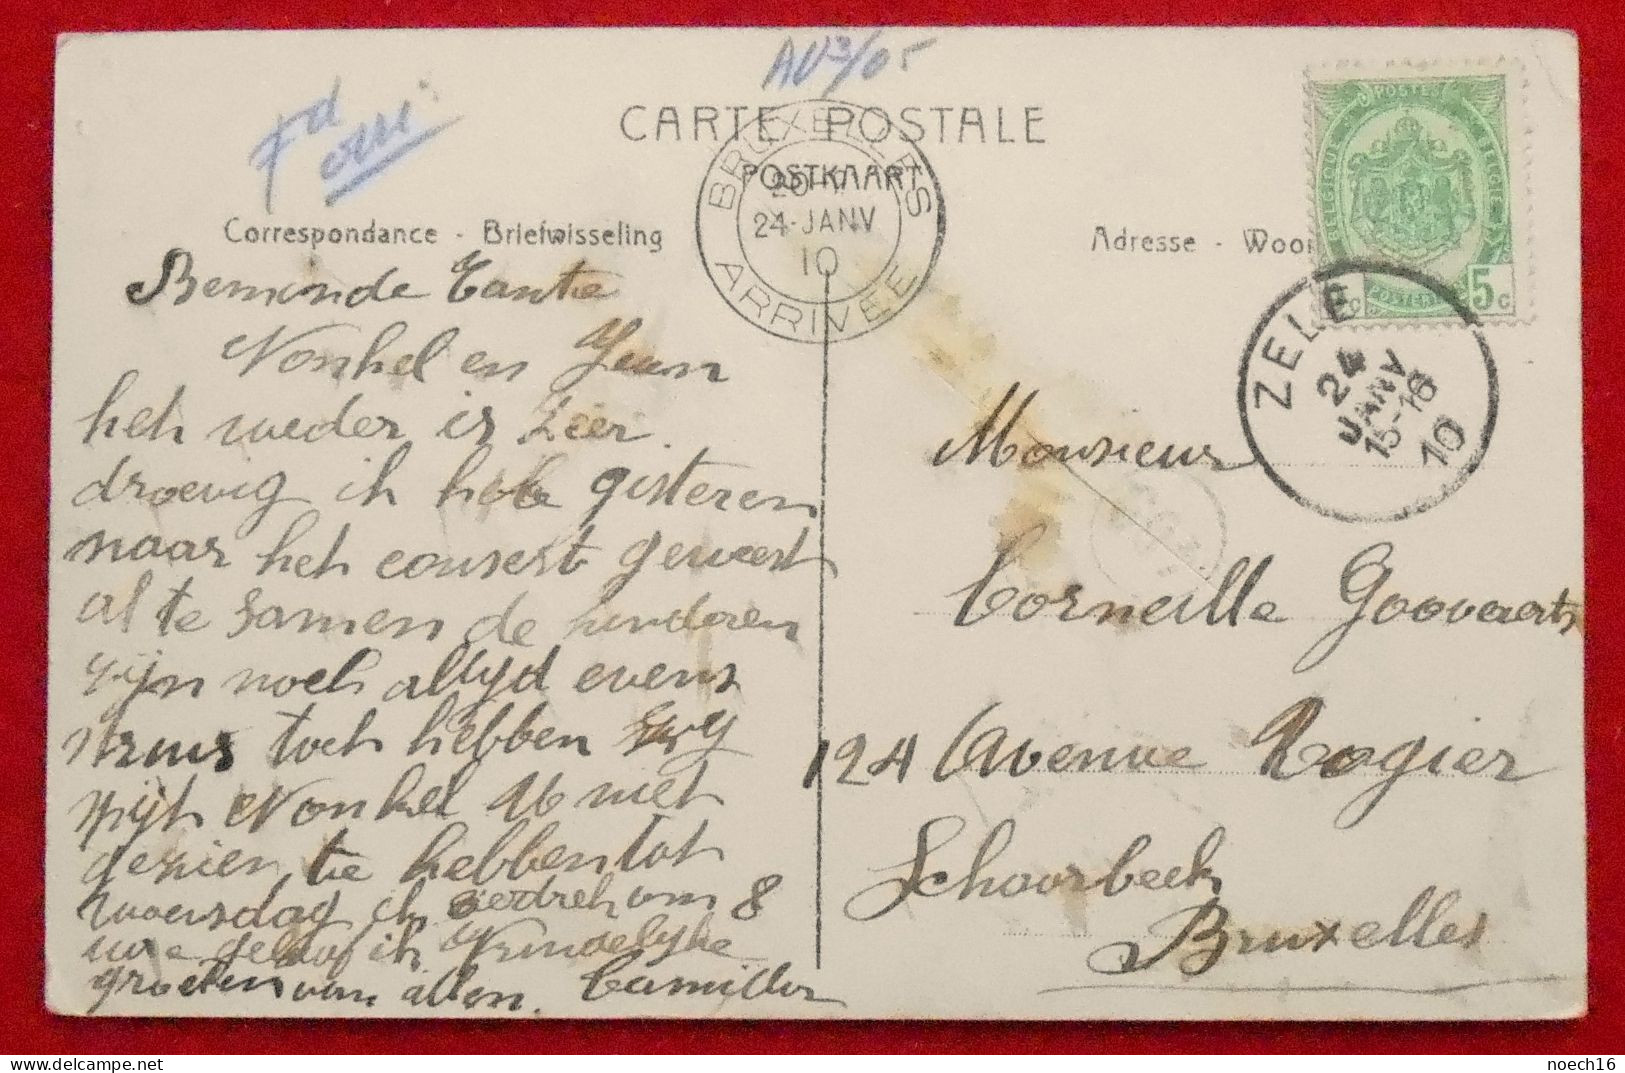 AV3/05
CARTE POSTALE
POSTKAART
BRUXELLES
24-JANV
10
ARRIVÉE
POSTES
5c
Correspondance - Briefwisseling
Adresse - Woon
ZELE
24
JANV
15-16
10
Beminde Tante
Nonkel en Jean
heh weder is Zeer
droevig ik hebe gisteren
naar heh consert geweest
al te samen de kinderen
zijn noch altyd evens
toch hebben
spijt Nonkel niet
gezien te hebben tot
woensdag ik om 8
uve geloof ik Vrindelyke
groeten van allen. Camiller
Monsieur
Corneille Goovaerts
124 Avenue Rogier
Schaarbeek
Bruxelles
noech16